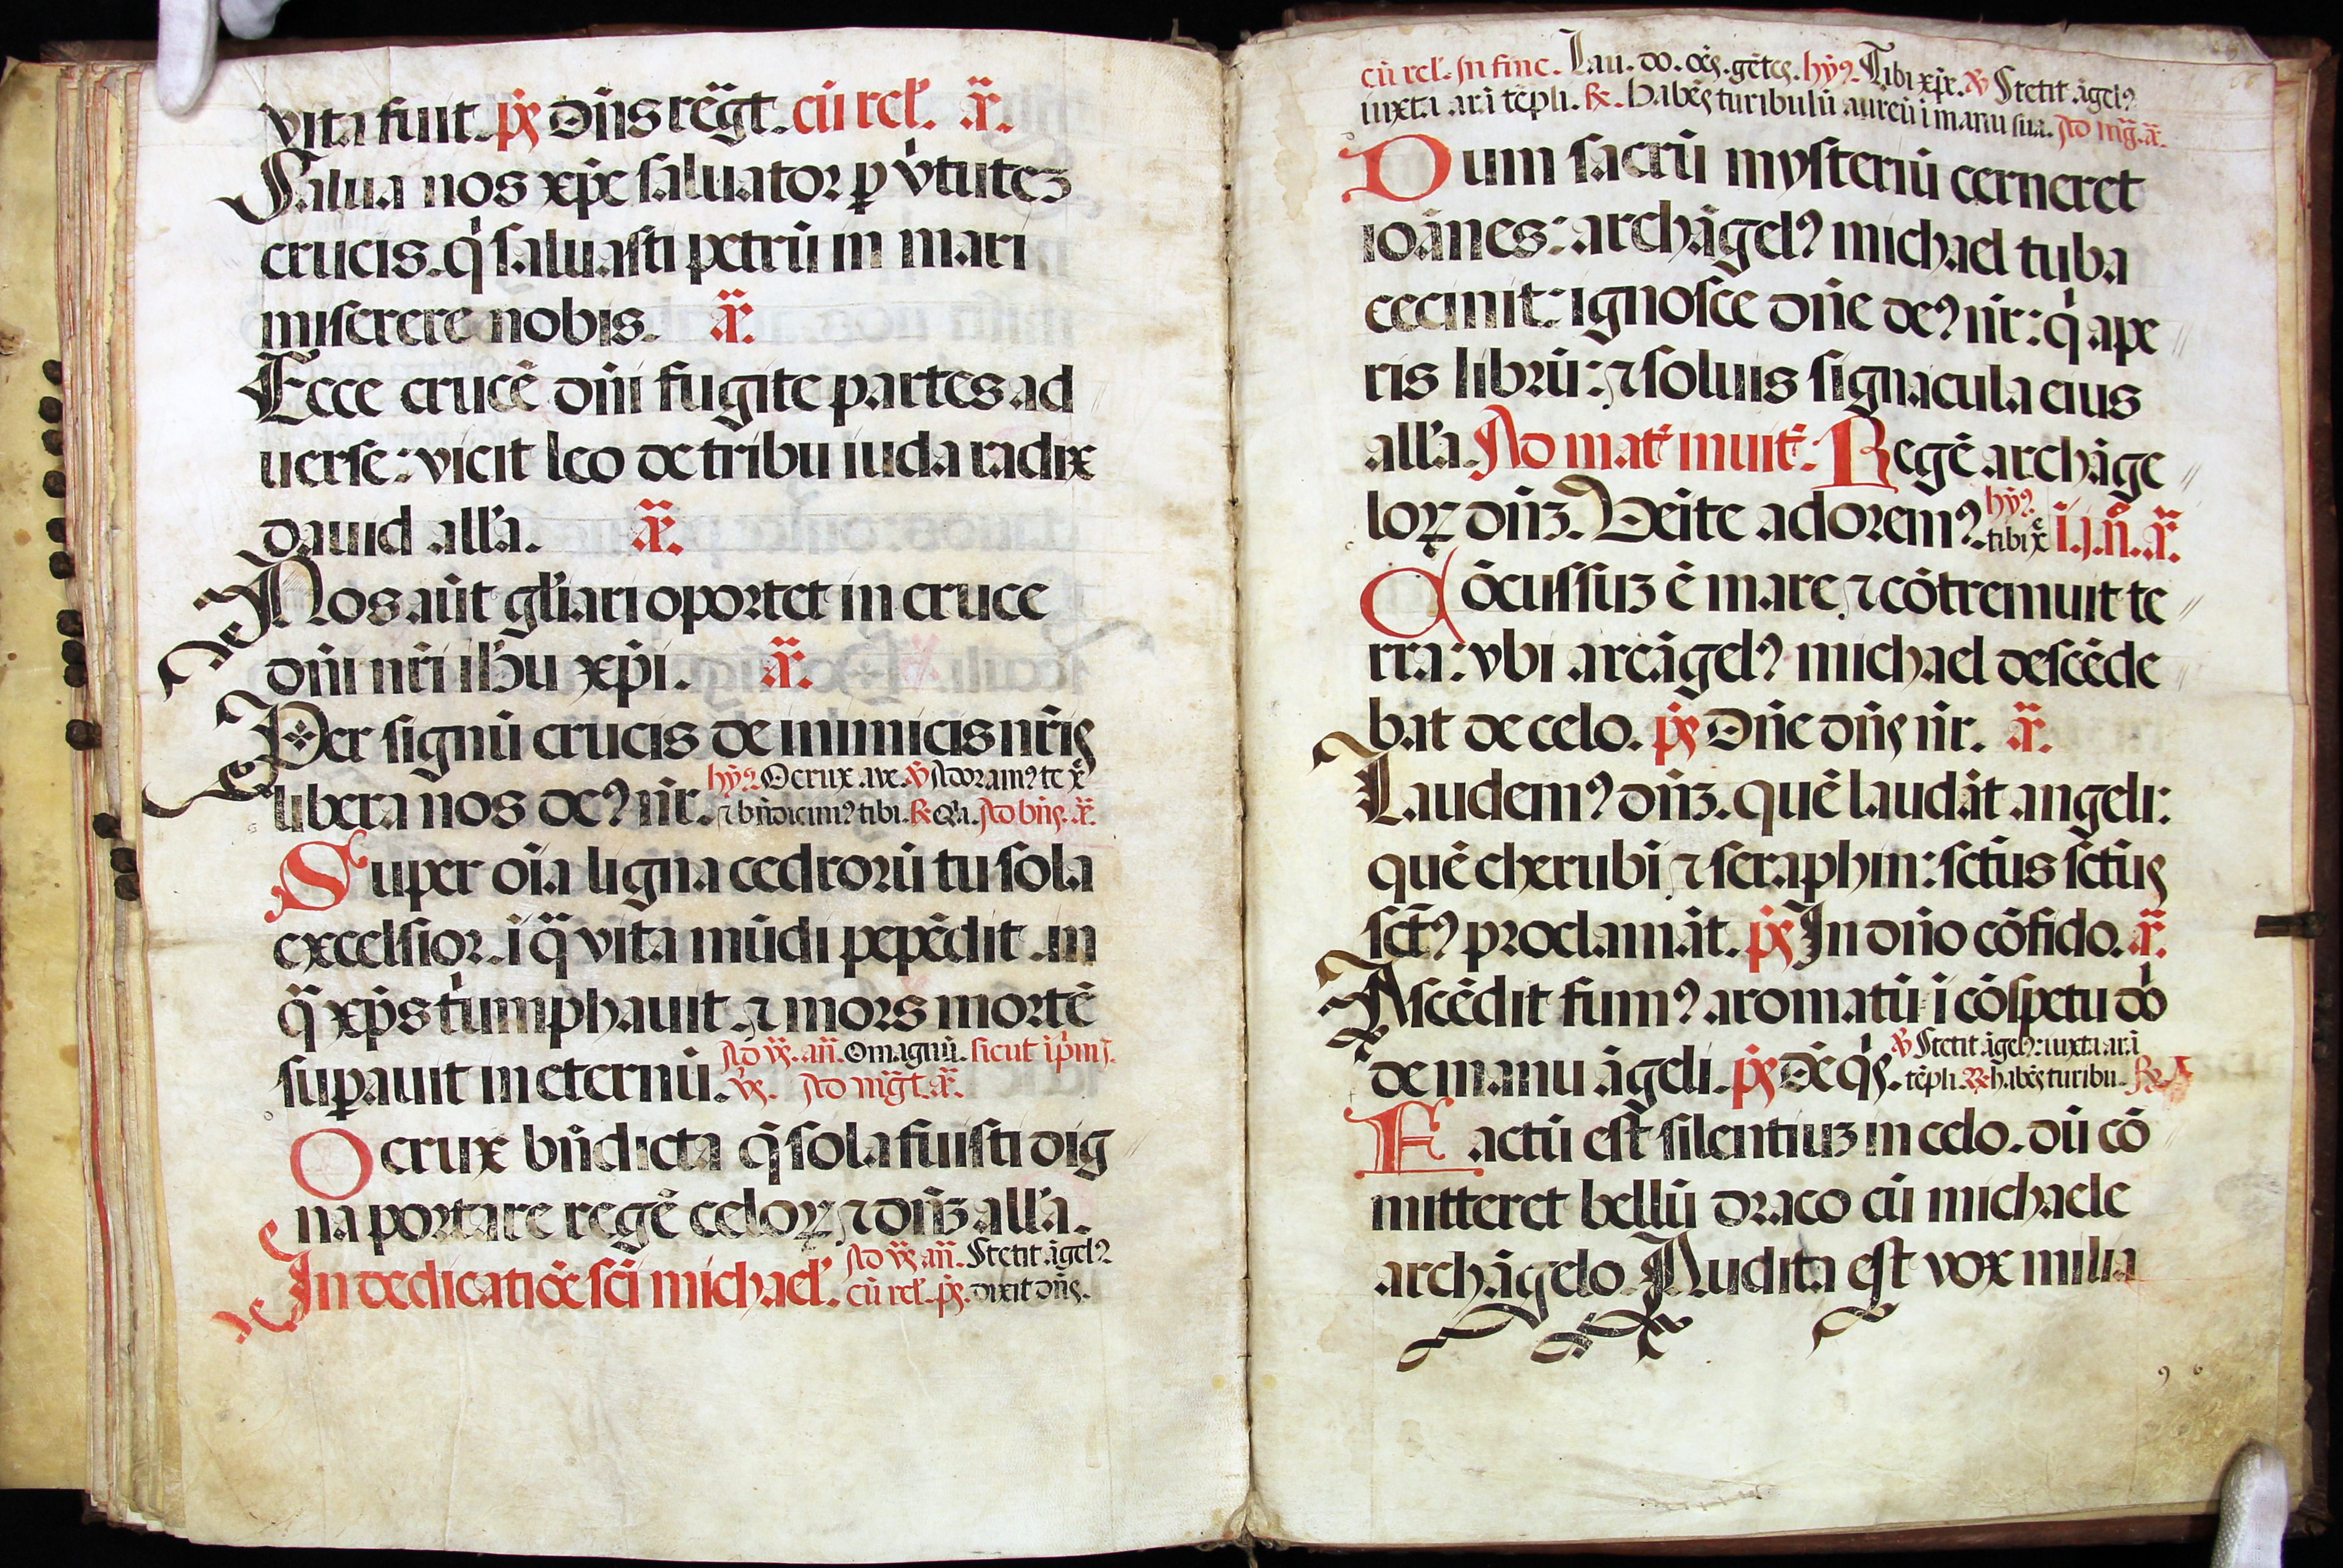 vita fuit. ps̄ Dn̄s rēgt. cū rel'. a᷈.
Salua nos xp̄e saluator p̱ v̇tutez
crucis. q̇ saluasti petrū in mari
miserere nobis. a᷈.
Ecce crucē dn̄i fugite partes ad
uerse: vicit leo de tribu iuda radix
dauid all'a. a᷈.
Nos aūt gl'iari oportet in cruce
dn̄i nr̄i ih̄u xp̄i. a᷈.
Per signū crucis de inimicis nr̄is
libera nos deꝰ nr̄. hȳꝰ. O crux aue. ℣ Adoramꝰ te x̄
⁊ bn̄dicimꝰ tibi. ℟ Q̇a. Ad bn̄s. a᷈.
Super oīa ligna cedrorū tu sola
excelsior. ī q̄ vita mūdi pepēdit. in
q̄ xp̄s tiūmphauit. ⁊ mors mortē
sup̱auit in eternū. Ad v̄s. an̄. O magnū. sicut ī pm̄s
v̄s. Ad mḡt. a᷈.
O crux bn̄dicta q̄ sola fuisti dig
na portare regē celoꝝ ⁊ dn̄z all'a.
In dedicatiōe sc̄i michael'. Ad v̄s. an̄. Stetit āgelꝰ
cū rel'. ps̄. dixit dn̄s.
cū rel'. In fine. Lau. do. oēs. gētes. hȳꝰ. Tibi xp̄e. ℣ Stetit āgelꝰ
iuxta arā tēpli. ℟. Habēs turibulū aureū ī manu sua. Ad mḡ. a᷈.
Dum sacrū mysteriū cerneret
ioānes: archāgelꝰ michael tuba
cecinit: ignosce dn̄e deꝰ nr̄: q̇ ape
ris librū: ⁊ soluis signacula eius
all'a. Ad mat' inuit': Regē archāge
loꝝ dn̄z. Veīte adoremꝰ. hȳꝰ. tibi x̄e ī. j. n̄. a᷈.
Cōcussuz ē mare ⁊ cōtremuit te
rra: vbi arcāgelꝰ michael descēde
bat de celo. ps̄ Dn̄e dn̄s nr̄. a᷈.
Laudemꝰ dn̄z. quē laudāt angeli:
quē cherubī ⁊ seraphin: sct̄us sct̄us
sct̄ꝰ proclamāt. ps̄ In dn̄o cōfido. a᷈.
Ascēdit fumꝰ aromatū ī cōspetu dō
de manu āgeli. ps̄ Dē q̇s. ℣ Stetit āgelꝰ: iuxta arā
tēpli. ℟ habēs turibu. ℟
Factū est silentiuz in celo. dū cō
mitteret bellū draco cū michaele
archāgelo. Audita est vox milia